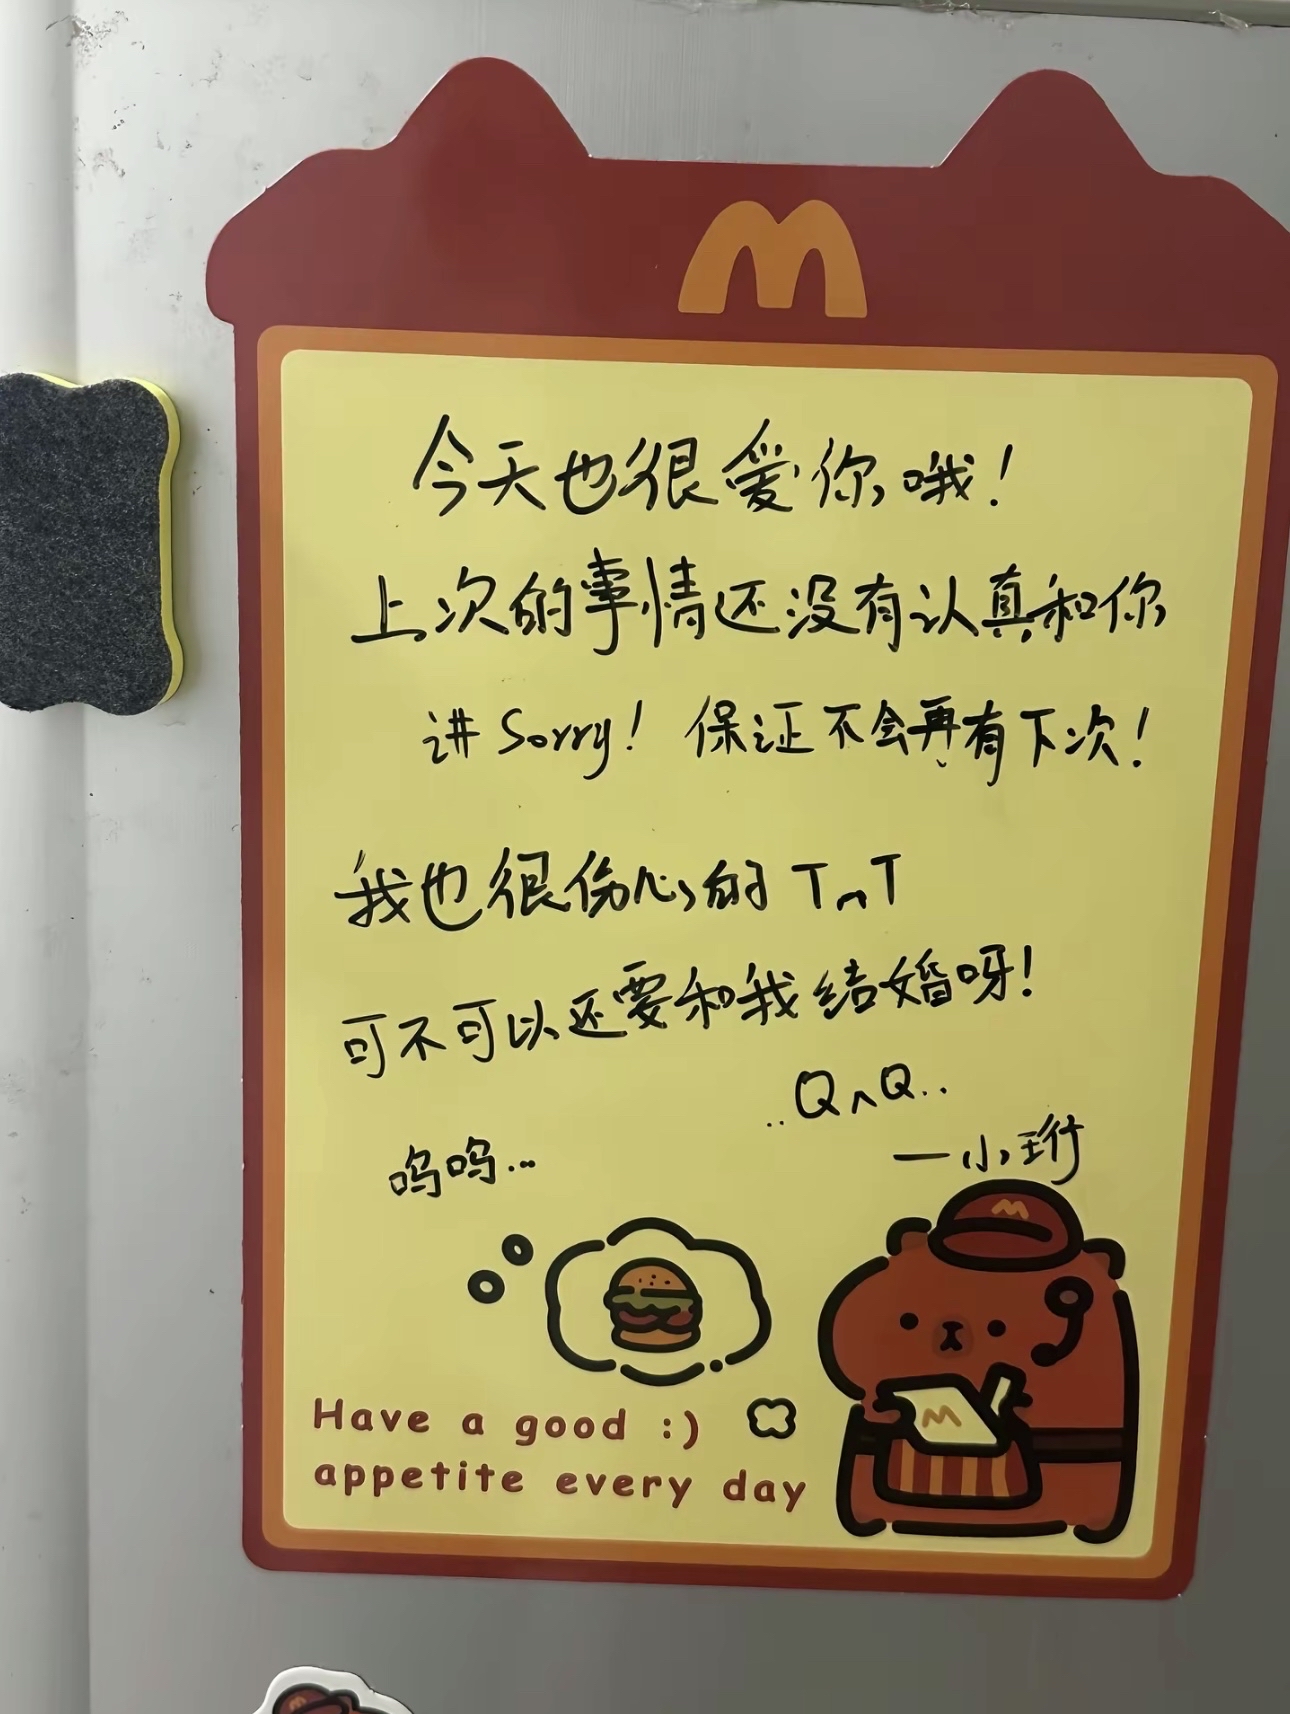 今天也很爱你哦！
上次的事情还没有认真和你
讲Sorry！保证不会再有下次！
我也很伤心的 TnT
可不可以还要和我结婚呀！
..Q∧Q..
呜呜...
—小珩
Have a good :)
appetite every day